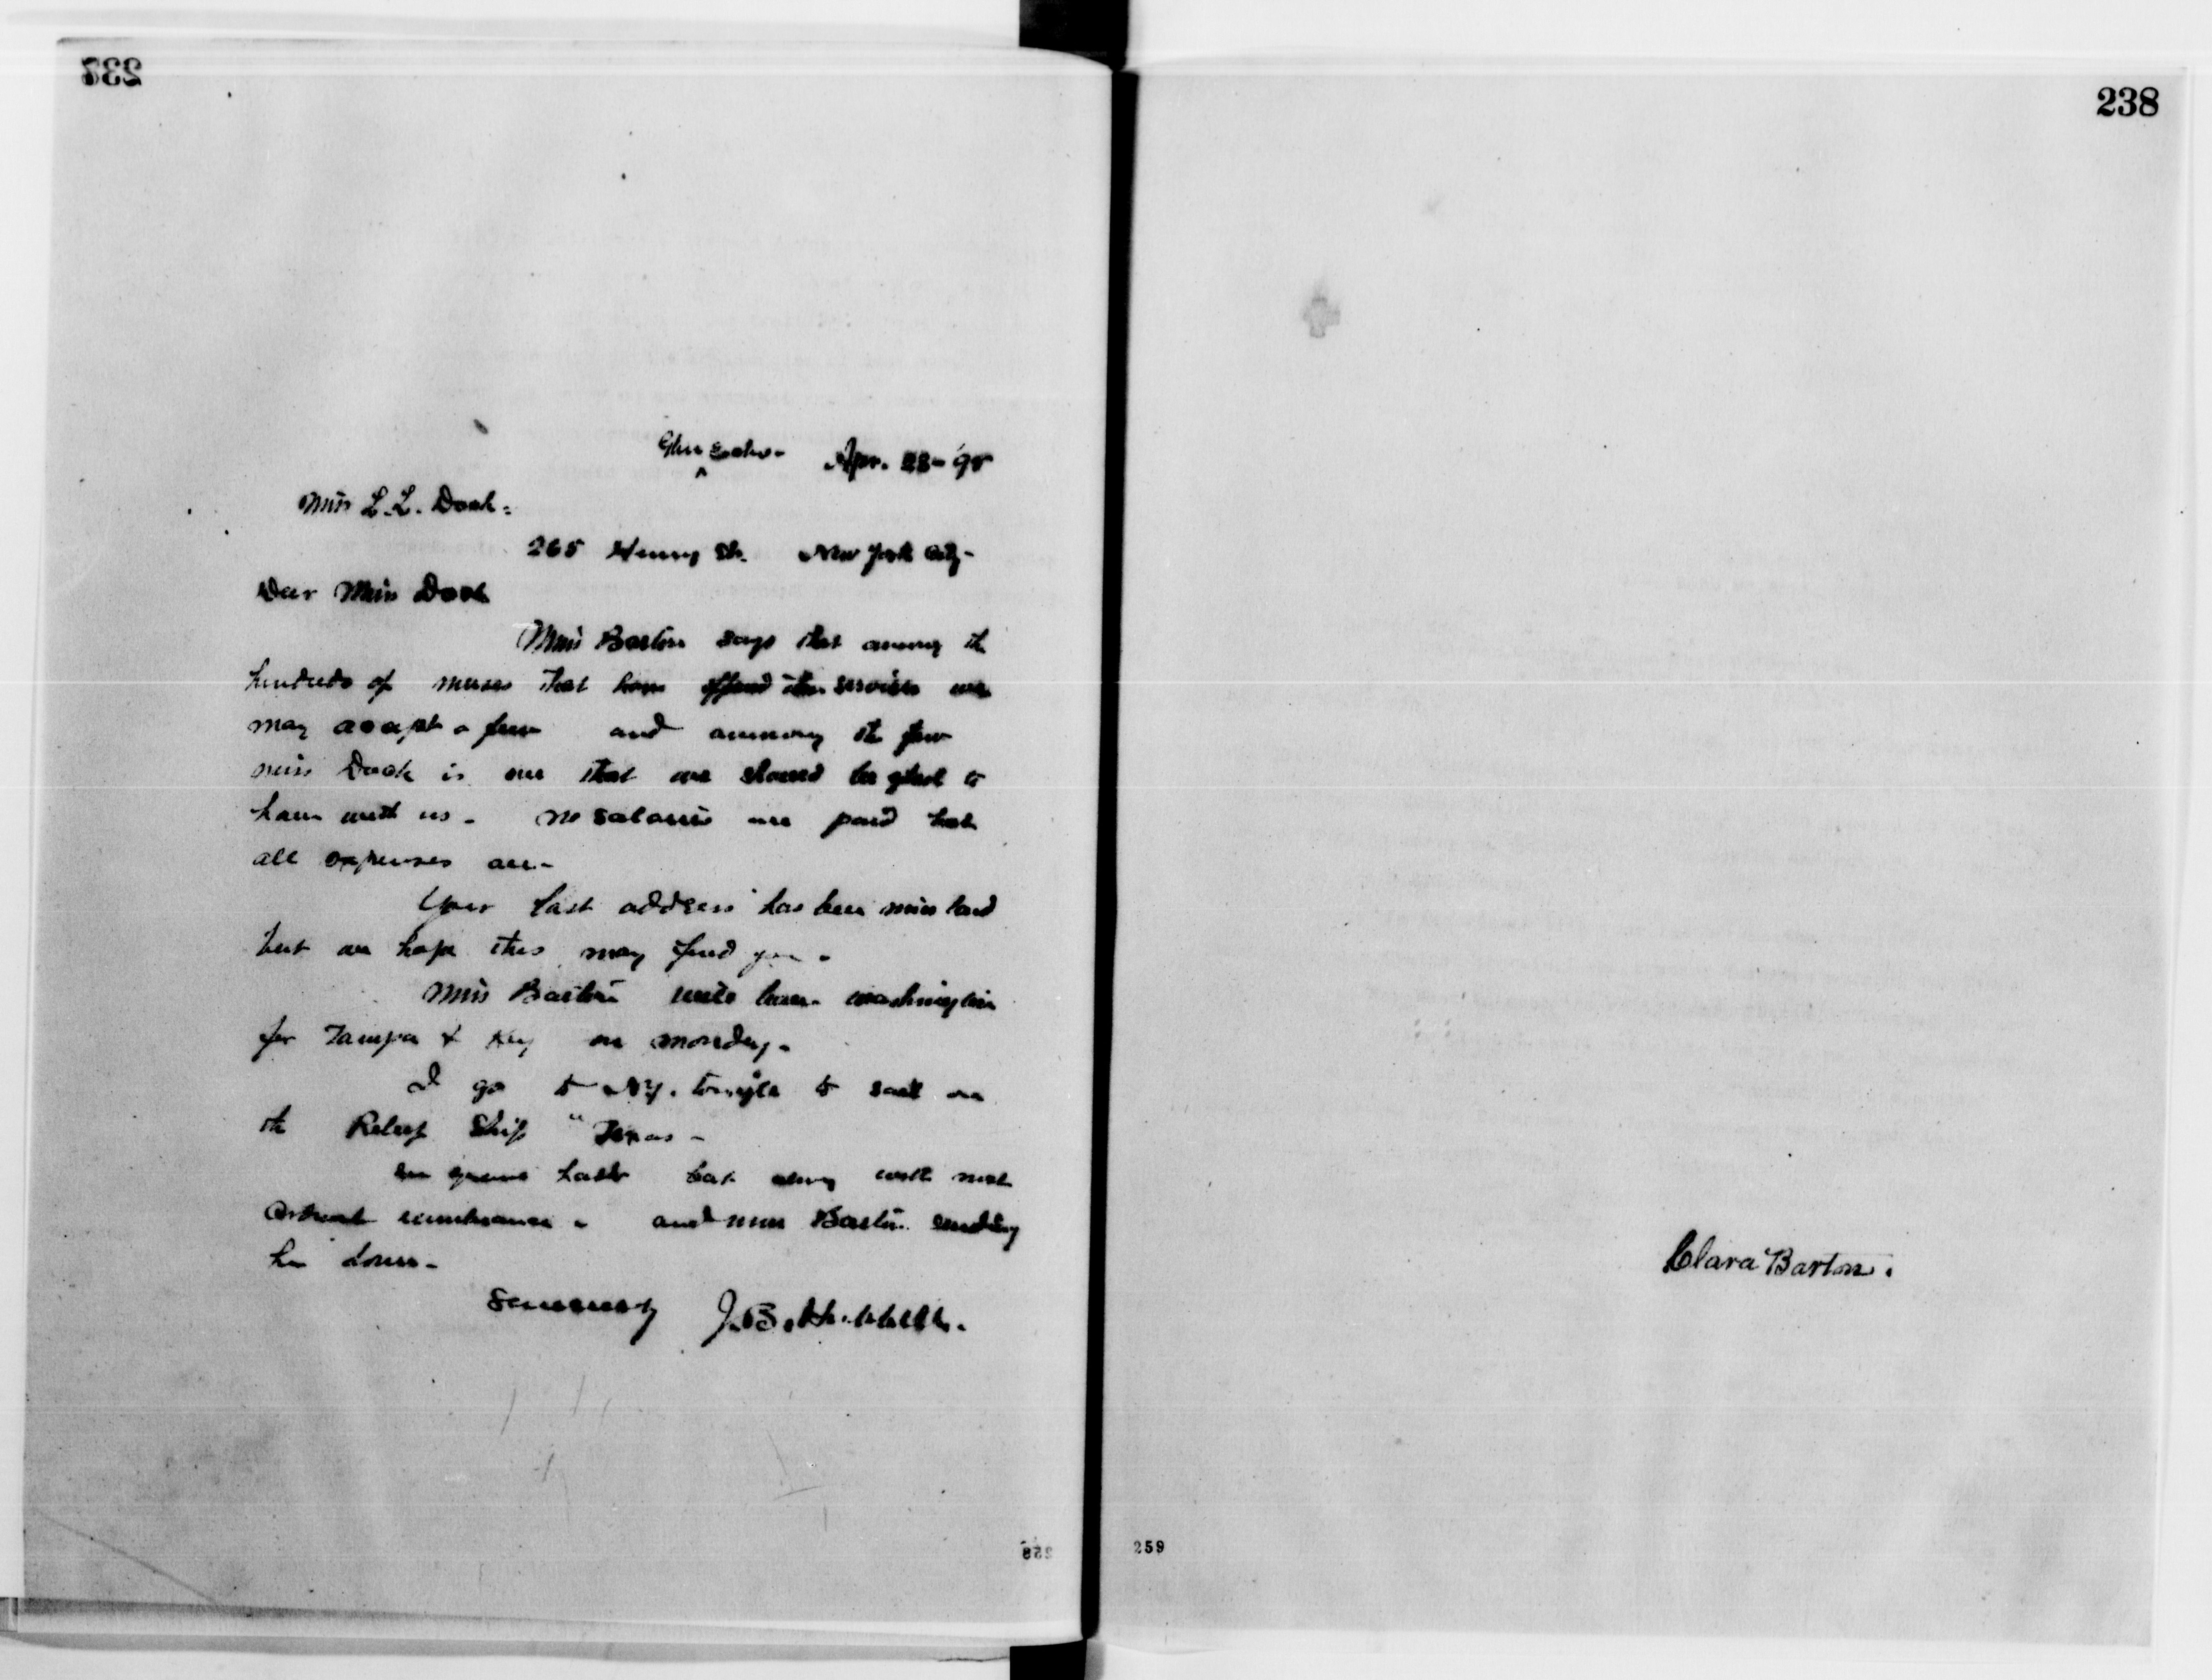 237
Glen Echo - Apr. 23 - '98
Miss L. L. Dock -
265 Henry St. New York City -
Dear Miss Dock
Miss Barton says that among the
hundreds of nurses that have offered their services we
may accept a few and among the few
miss Dock is one that we should be glad to
have with us - no salaries are paid but
all expenses are -
Your last address has been mis laid
but we hope this may find you -
Miss Barton will leave washington
for Tampa & Key on monday -
I go to N.Y. tonight to sail on
the Relief Ship "Texas -
In haste but with most
remembrance - and miss Barton sending
her love -
Sincerely J. B. Hubbell.
258
238
Clara Barton.
259